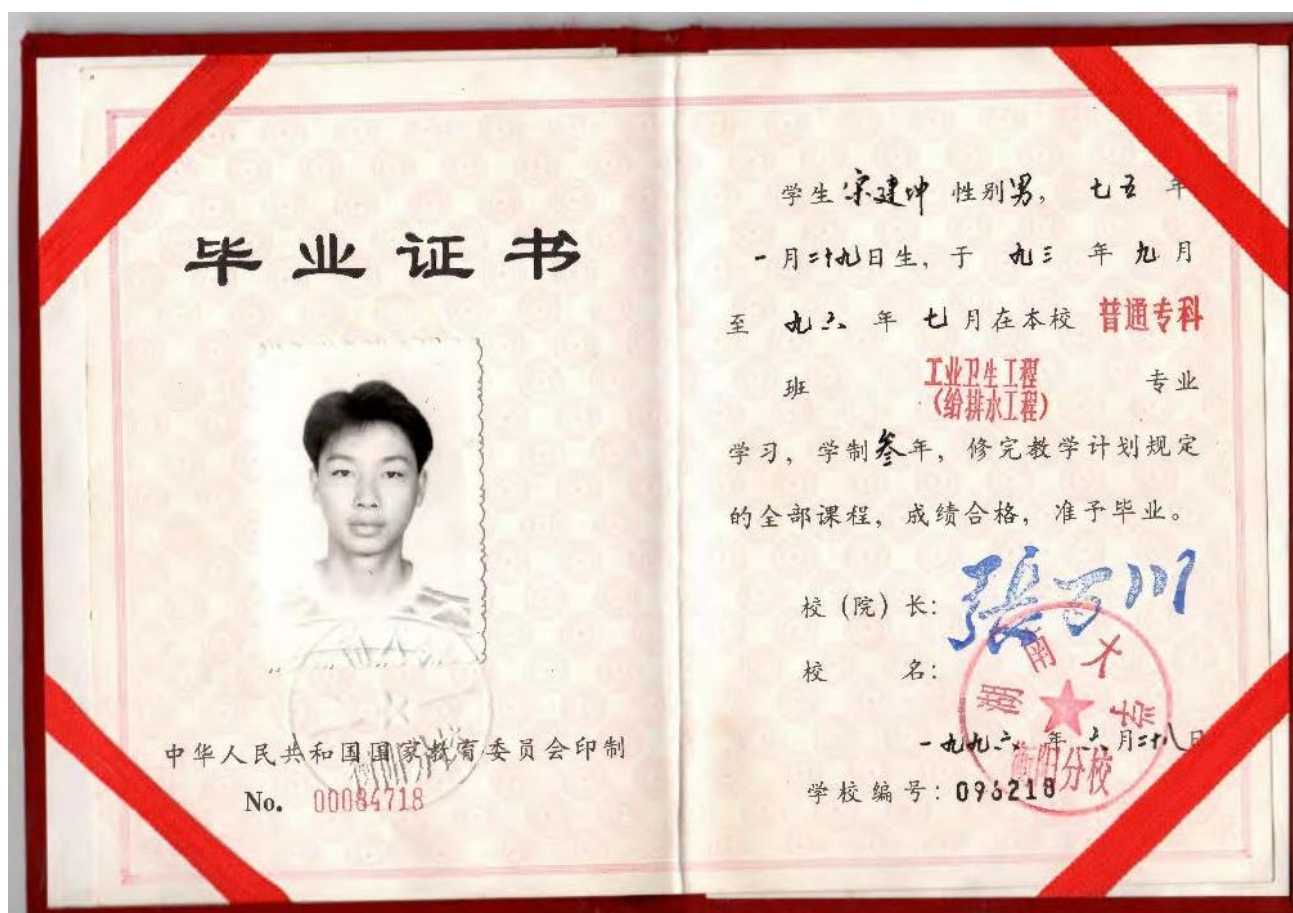 毕业证书
中华人民共和国国家教育委员会印制
No. 00084718
学生宋建坤 性别男, 七五 年
一月二十九日生, 于 九三 年 九 月
至 九六 年 七 月在本校 普通专科
班 工业卫生工程 专业
(给排水工程)
学习, 学制叁年, 修完教学计划规定
的全部课程, 成绩合格, 准予毕业。
校 (院) 长: 張
校 名:
湖南大学
衡阳分校
一九九六 年 六 月二十八日
学校编号: 096218
衡阳分校